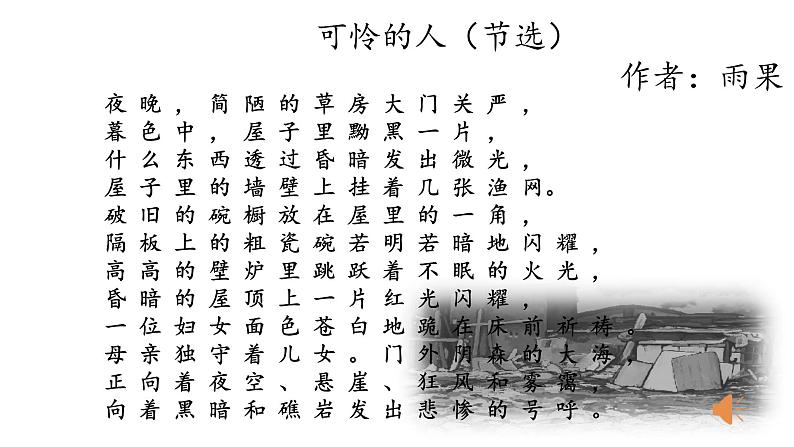 可怜的人（节选）
作者：雨果
夜晚，简陋的草房大门关严，
暮色中，屋子里黝黑一片，
什么东西透过昏暗发出微光，
屋子里的墙壁上挂着几张渔网。
破旧的碗橱放在屋里的一角，
隔板上的粗瓷碗若明若暗地闪耀，
高高的壁炉里跳跃着不眠的火光，
昏暗的屋顶上一片红光闪耀，
一位妇女面色苍白地跪在床前祈祷。
母亲独守着儿女。门外阴森的大海，
正向着夜空、悬崖、狂风和雾霭，
向着黑暗和礁岩发出悲惨的号呼。